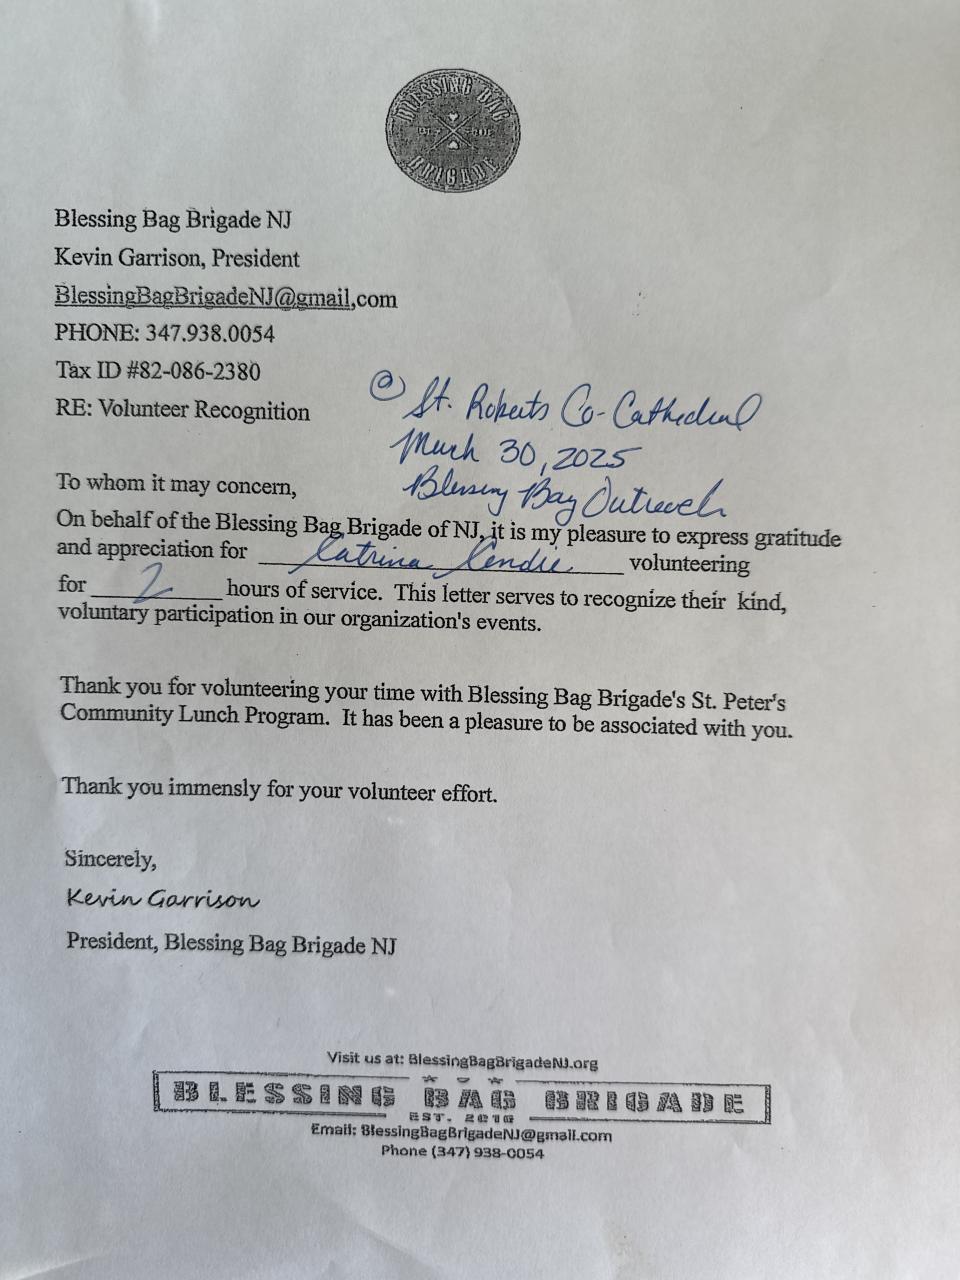 BLESSING BAG
BRIGADE
Blessing Bag Brigade NJ
Kevin Garrison, President
BlessingBagBrigadeNJ@gmail,com
PHONE: 347.938.0054
Tax ID #82-086-2380
RE: Volunteer Recognition
@ St. Roberts Co-Cathedral
March 30, 2025
Blessing Bag Outreach
To whom it may concern,
On behalf of the Blessing Bag Brigade of NJ, it is my pleasure to express gratitude
and appreciation for Catrina volunteering
for 2 hours of service. This letter serves to recognize their kind,
voluntary participation in our organization's events.
Thank you for volunteering your time with Blessing Bag Brigade's St. Peter's
Community Lunch Program. It has been a pleasure to be associated with you.
Thank you immensly for your volunteer effort.
Sincerely,
Kevin Garrison
President, Blessing Bag Brigade NJ
Visit us at: BlessingBagBrigadeNJ.org
BLESSING BAG BRIGADE
EST. 2016
Email: BlessingBagBrigadeNJ@gmail.com
Phone (347) 938-0054